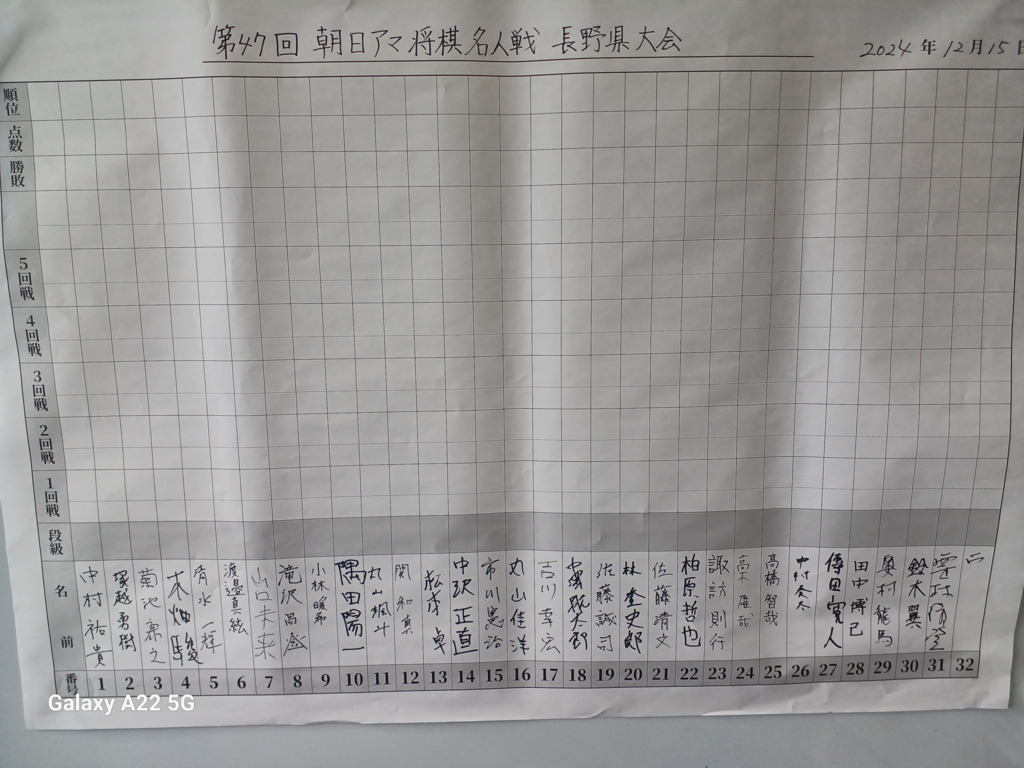 第47回 朝日アマ将棋名人戦 長野県大会
2024年12月15日
順位
点数
勝敗
5回戦
4回戦
3回戦
2回戦
1回戦
段級
名前
中村祐貴
塚越勇樹
菊池康之
木畑駿
青水一輝
渡邉真絃
山口未来
滝沢昌盛
小林暖希
隅田陽一
丸山楓斗
関和真
中沢正直
市川恵治
丸山佳洋
吉川孝宏
佐藤誠司
林奎史郎
佐藤靖文
柏原哲也
諏訪則行
高木雄哉
高橋智哉
中村泰冬
傳田寛人
田中博己
奥村龍馬
鈴木翼
番号
1 2 3 4 5 6 7 8 9 10 11 12 13 14 15 16 17 18 19 20 21 22 23 24 25 26 27 28 29 30 31 32
Galaxy A22 5G